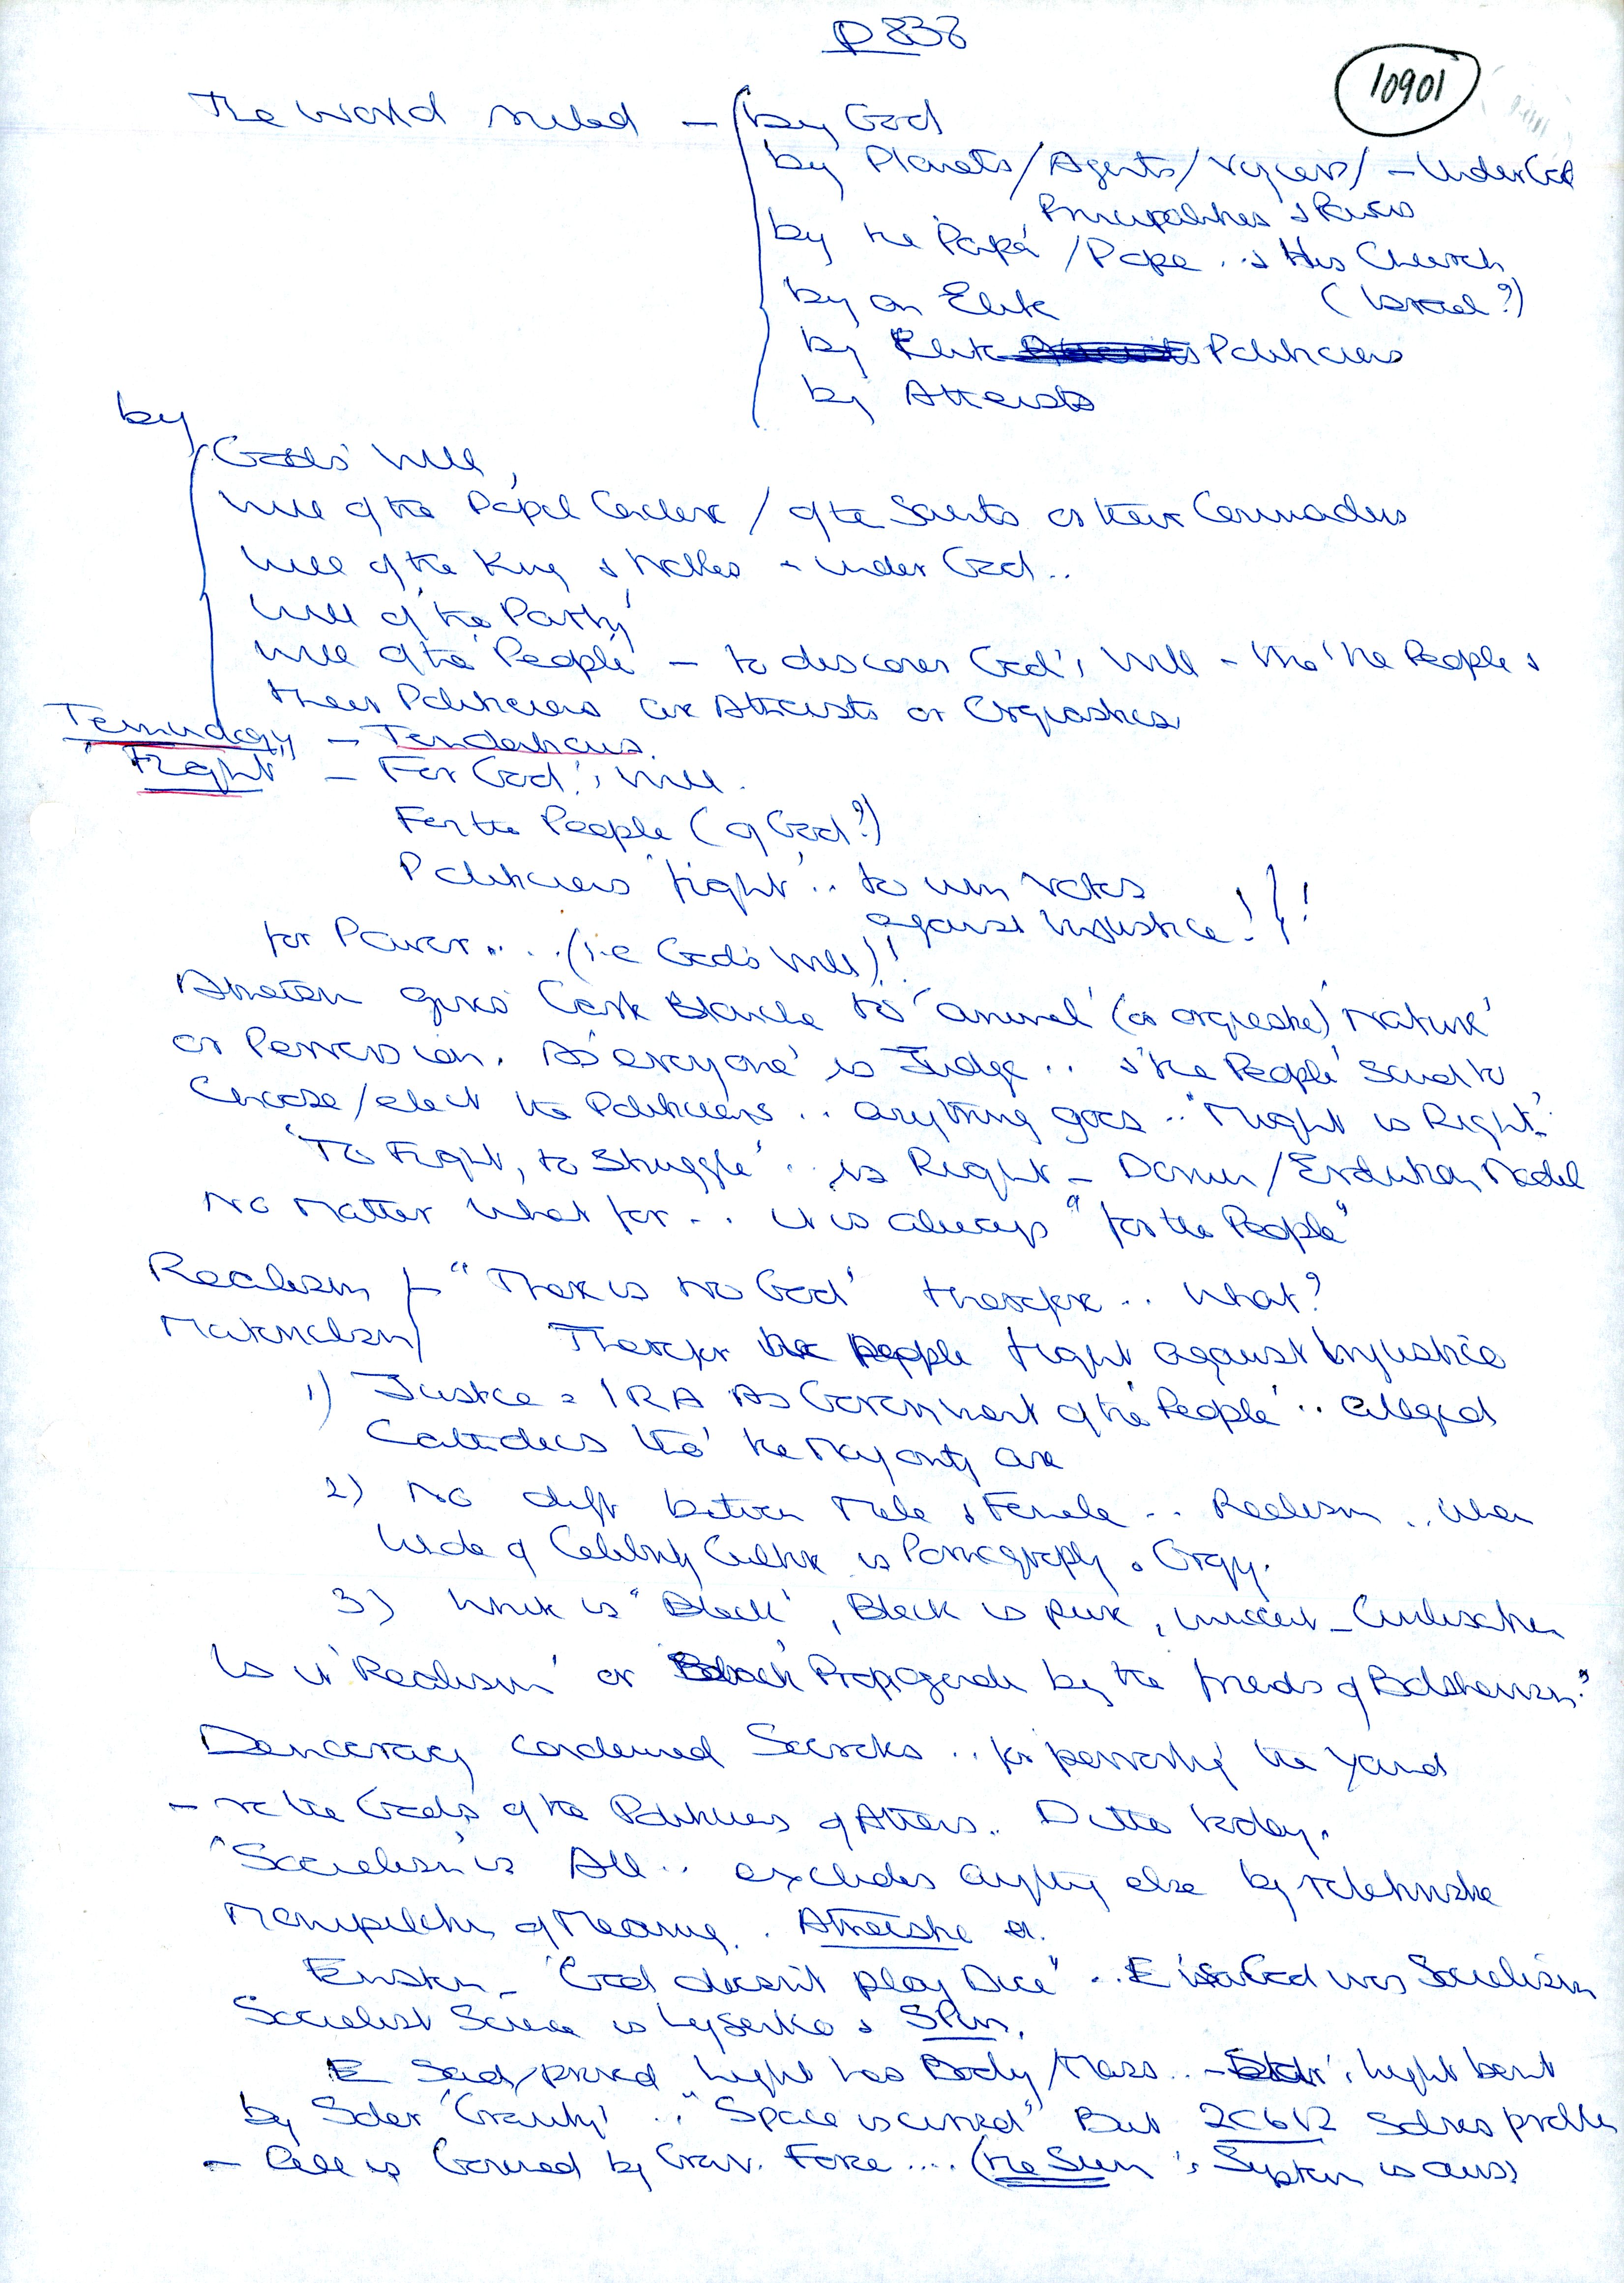 p838
10901
The World ruled - by God
by Planets/Agents/Vycers/ - Under God
Principalities & Powers
by the 'Papa' /Pope .. & His Church
by an Elite (Israel?)
by Elite Politicians
by Atheists
by
God's Will,
Will of the Papal Conclave / of the Saints or their
Will of the King & Nobles - under God..
Will of 'the Party'
Will of 'the People' - to discover God's Will - tho' the People &
their Politicians are Atheists or Orgiastics
Terminology - Tendentious.
"Fight" - For God's Will.
For the People (of God?)
Politicians 'fight' .. to win votes
against Injustice! }!
for Power .. .. (i.e God's Will)!
Atheism gives Carte Blanche to 'animal' (or orgiastic) Nature'
or Perversion. As 'everyone' is Judge .. & 'the People' said to
Choose/elect the Politicians .. anything goes .. "Might is Right"
'To Fight, to Struggle' .. is Right - Darwin/Evolution Model
No Matter what for .. it is always "for the People"
Realism } - "There is no God" therefore .. What?
Materialism } Therefore the people fight against Injustice
1) Justice = IRA as Government of 'the People' .. alleged
Catholics tho' the Majority are
2) No diff between Male & Female .. Realism .. when
whole of Celebrity Culture is Pornography & Orgy.
3) White is "Black", Black is pure, innocent - Civilisation
Is it 'Realism' or Black Propaganda by the friends of Bolshevism?"
Democracy condemned Socrates .. for perverting the Young
- re the Gods of the Politicians of Athens. Ditto today.
"Socialism' is All .. excludes anything else by
Manipulation of Meaning .. Atheistic
Einstein - "God doesn't play Dice" .. E is God was Socialism
Socialist Science is Lysenko & SPin.
E Said/proved Light has Body/Mass .. - Star's light bent
by Solar 'Gravity' .. "Space is curved" But solves problem
- All is Governed by Grav. Force .... (the Sun's System is